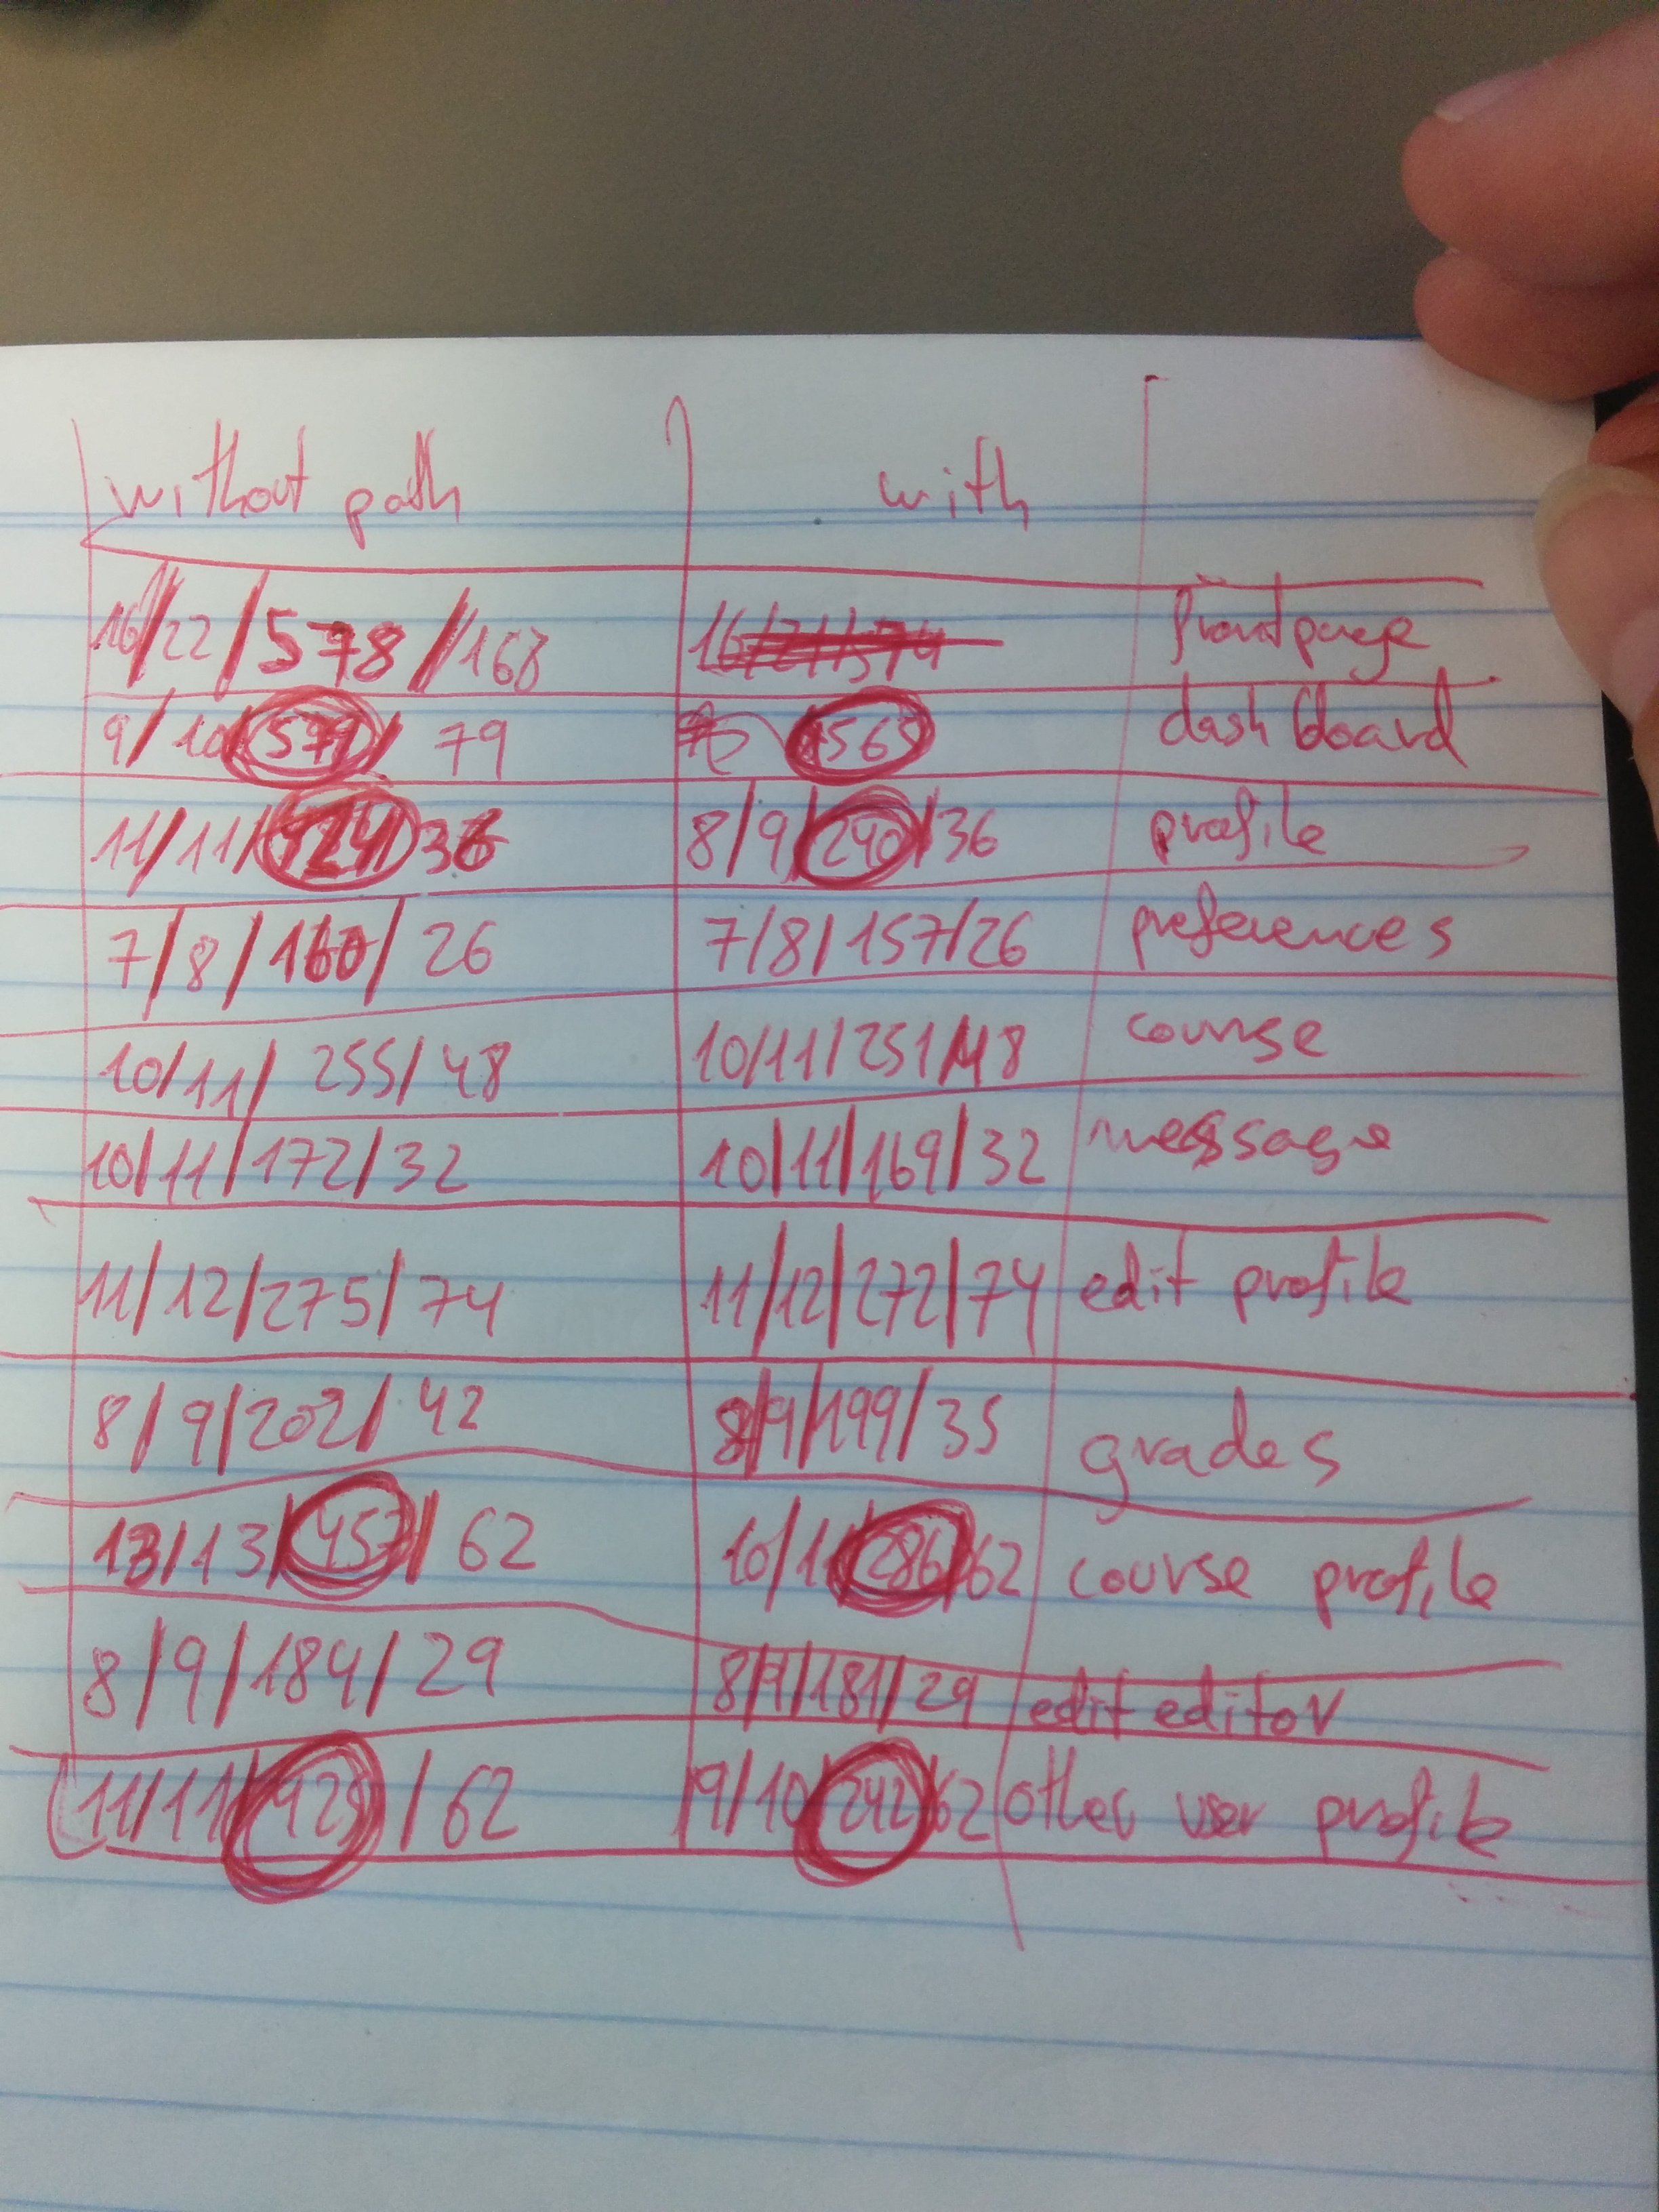 without path with
16/22/578/168 frontpage
9/10/579/79 565 dashboard
11/11/424/36 8/9/240/36 profile
7/8/160/26 7/8/157/26 preferences
10/11/255/48 10/11/251/48 course
10/11/172/32 10/11/169/32 message
11/12/275/74 11/12/272/74 edit profile
8/9/202/42 8/9/199/35 grades
13/13/457/62 10/11/286/62 course profile
8/9/184/29 8/9/181/29 edit editor
11/11/428/62 9/10/242/62 other user profile